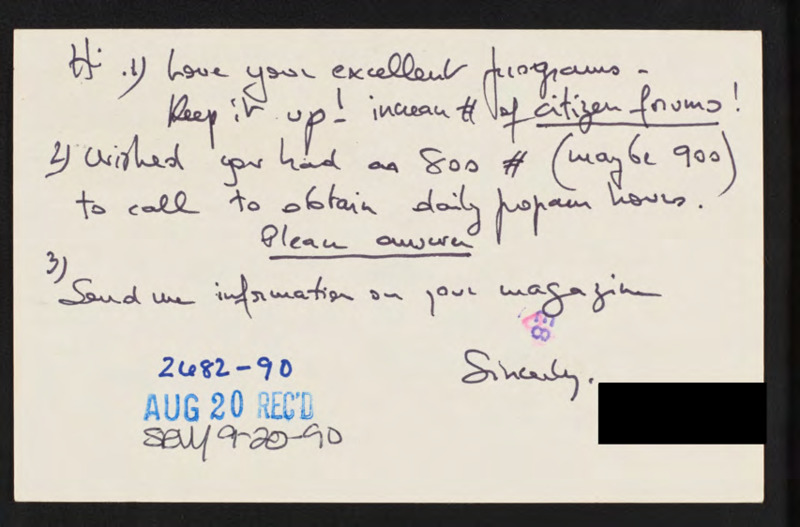 Hi 1) Love your excellent programs -
Keep it up! increase # of citizen forums!
2) Wished you had an 800 # (maybe 900)
to call to obtain daily program hours.
Please answer
3)
Send me information on your magazine
Sincerely.
2482-90
AUG 20 REC'D
9-20-90